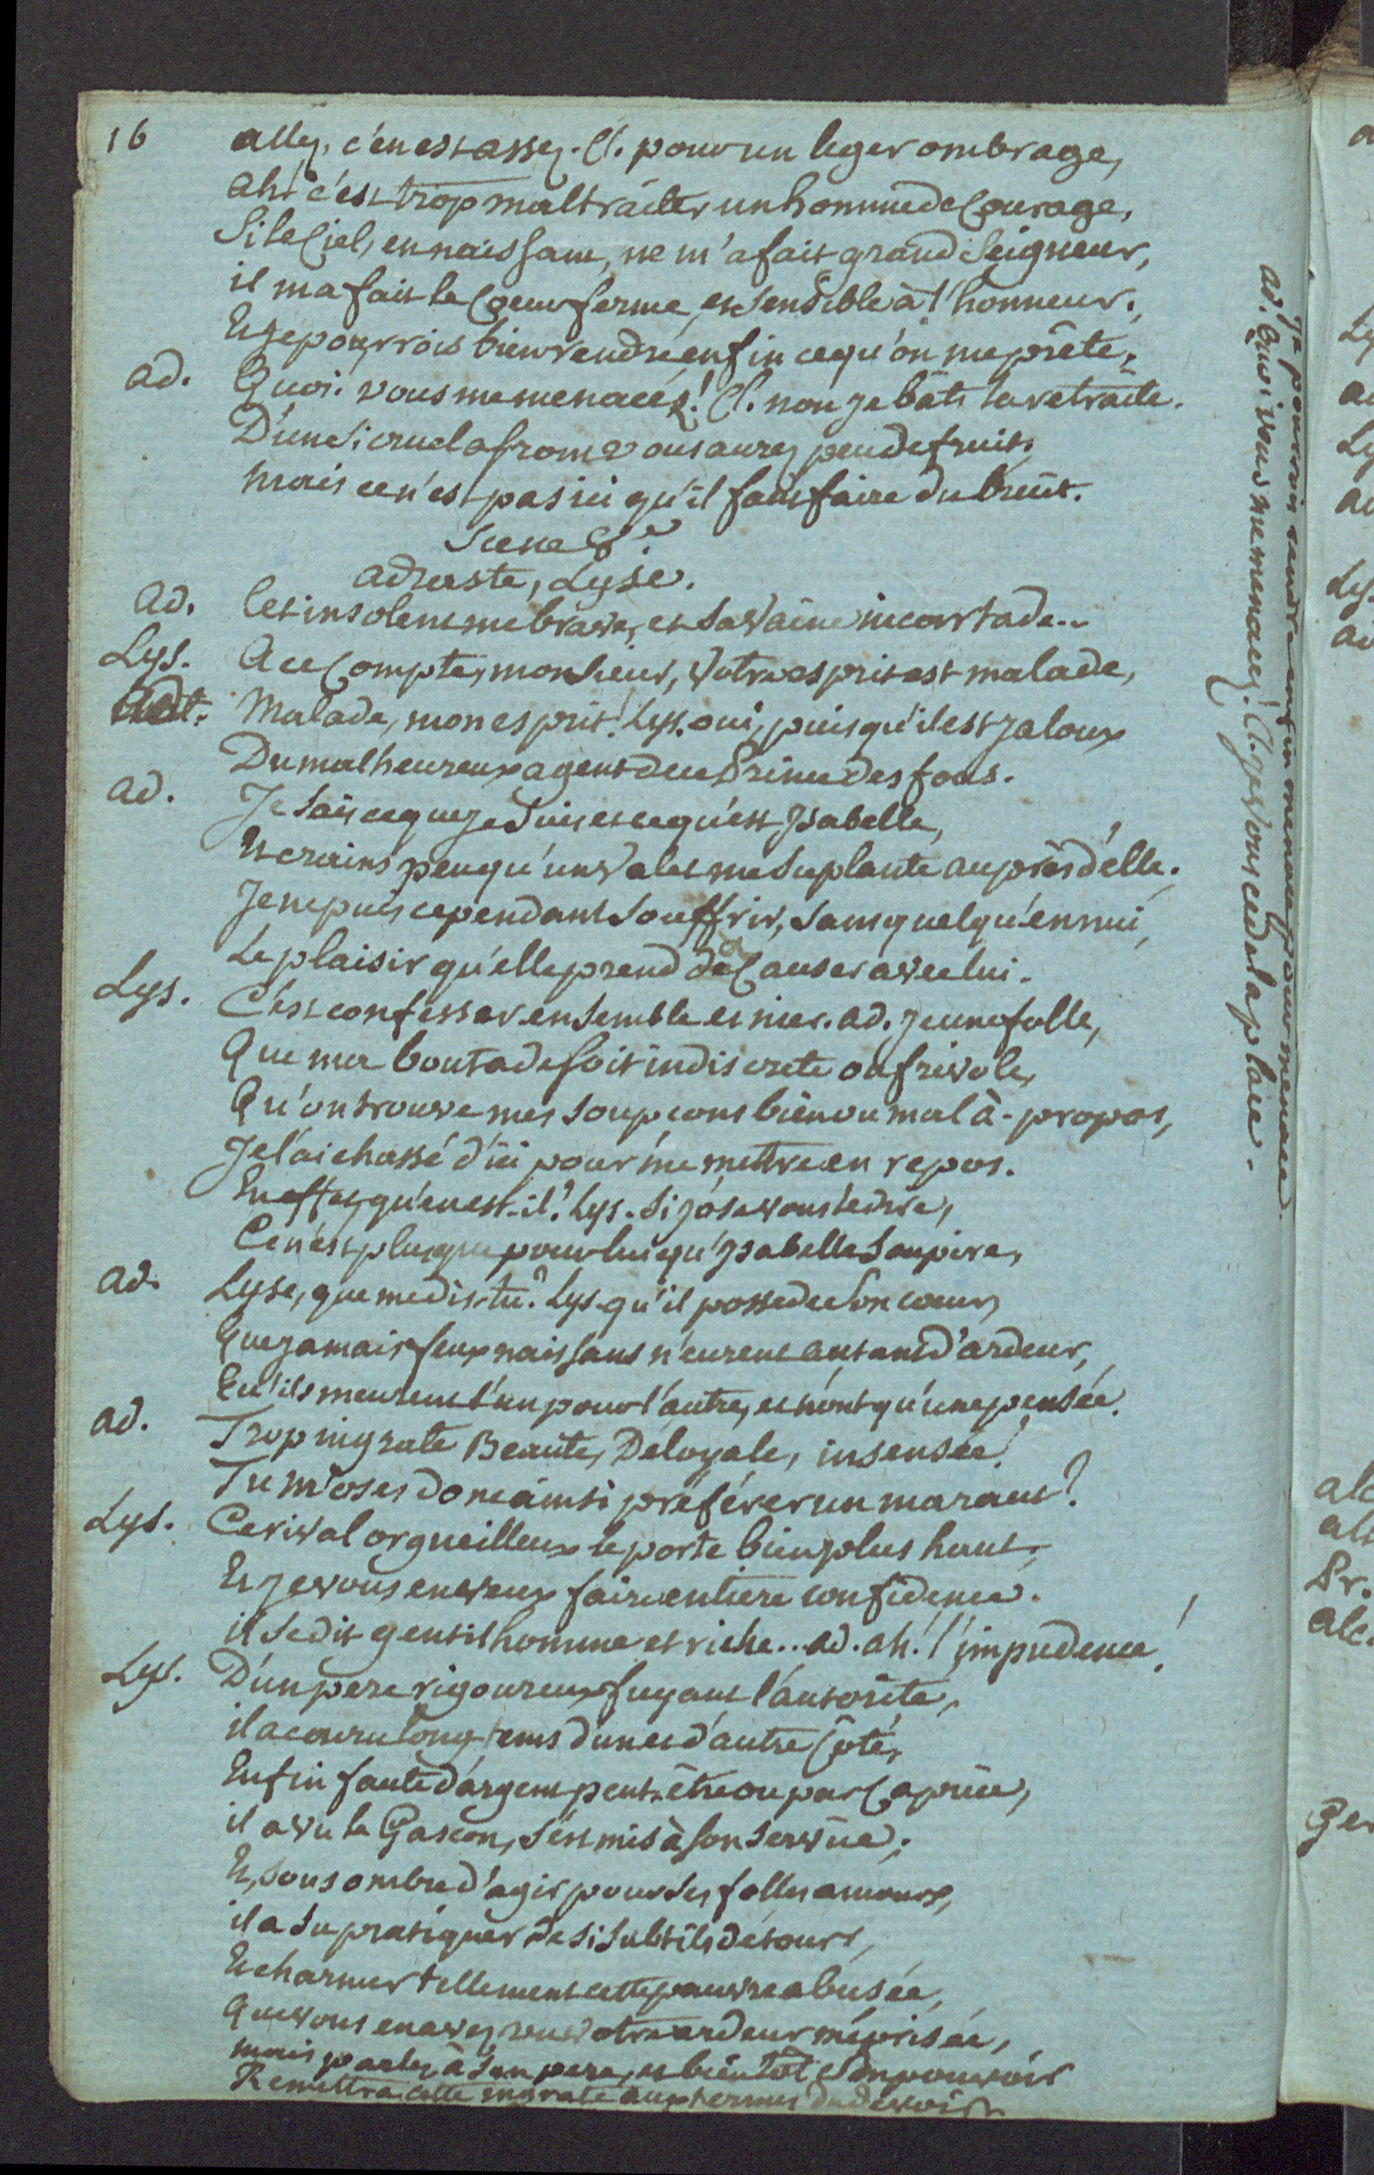 16
allez, c'en est assez. Cl. pour un leger ombrage,
ah! c'est trop maltraiter un homme de Courage,
Si le Ciel, en naissant, ne m'a fait grand Seigneur,
il m'a fait le Coeur ferme, et Sensible à l'honneur.
Et je pourrois bien rendre enfin ce qu'on me prête.
ad. Quoi. vous me menacéz! Cl. non je bâts la retraite.
D'une si cruel afront vous aurez peu de fruit,
mais ce n'est pas ici qu'il faut faire du bruit.
Scene 8e
adraste, Lyse.
ad. Cet insolent me brave, et sa vaine incartade..
Lys. A ce Compte, monsieur, votre esprit est malade,
ad. Malade, mon esprit! Lys. oui, puisqu'il est jaloux
Du malheureux agent de ce Prince des fous.
ad. Je sais ce que je suis et ce qu'est Isabelle,
Et crains peu qu'un valet me suplante auprès d'elle.
Je ne puis cependant souffrir, sans quelqu'ennui,
Le plaisir qu'elle prend à Causer avec lui.
Lys. C'est confesser ensemble et nier. ad. jeune folle,
Que ma boutade soit indiscrete ou frivole,
Qu'on trouve mes soupcons bien ou mal à-propos,
Je l'ai chassé d'ici pour me mettre en repos.
En effet, qu'en est-il? Lys. Si j'ose vous le dire,
Ce n'est plus que pour lui qu'Isabelle soupire,
ad. Lyse, que me dis-tu? Lys. qu'il possede son coeur,
Que jamais feux naissans n'eurent autant d'ardeur,
Qu'ils meurent l'un pour l'autre, et n'ont qu'une pensée.
ad. Trop ingrate Beauté, Déloyale, insensée!
Tu m'oses donc ainsi préférer un maraut?
Lys. Ce rival orgueilleux le porte bien plus haut,
Et je vous en veux faire entiere confidence.
il se dit gentilhomme et riche... ad. ah! l'impudence!
Lys. D'un pere rigoureux fuyant l'autorité,
il a couru long-tems d'un et d'autre Côté,
Enfin faute d'argent peut-être ou par Caprice,
il a vu le Gascon, s'est mis à son service;
Et, sous ombre d'agir pour ses folles amours,
il a su pratiquer de si subtils détours,
Et charmer tellement cette pauvre abusée,
Que vous en avez vu votre ardeur méprisée,
mais parlez à son pere, et bientôt son pouvoir
Remettra cette ingrate aux termes du devoir.
Je pourrois rendre enfin menace pour menace.
ad. Quoi vous me menacez! Cl. je vous cede la place.